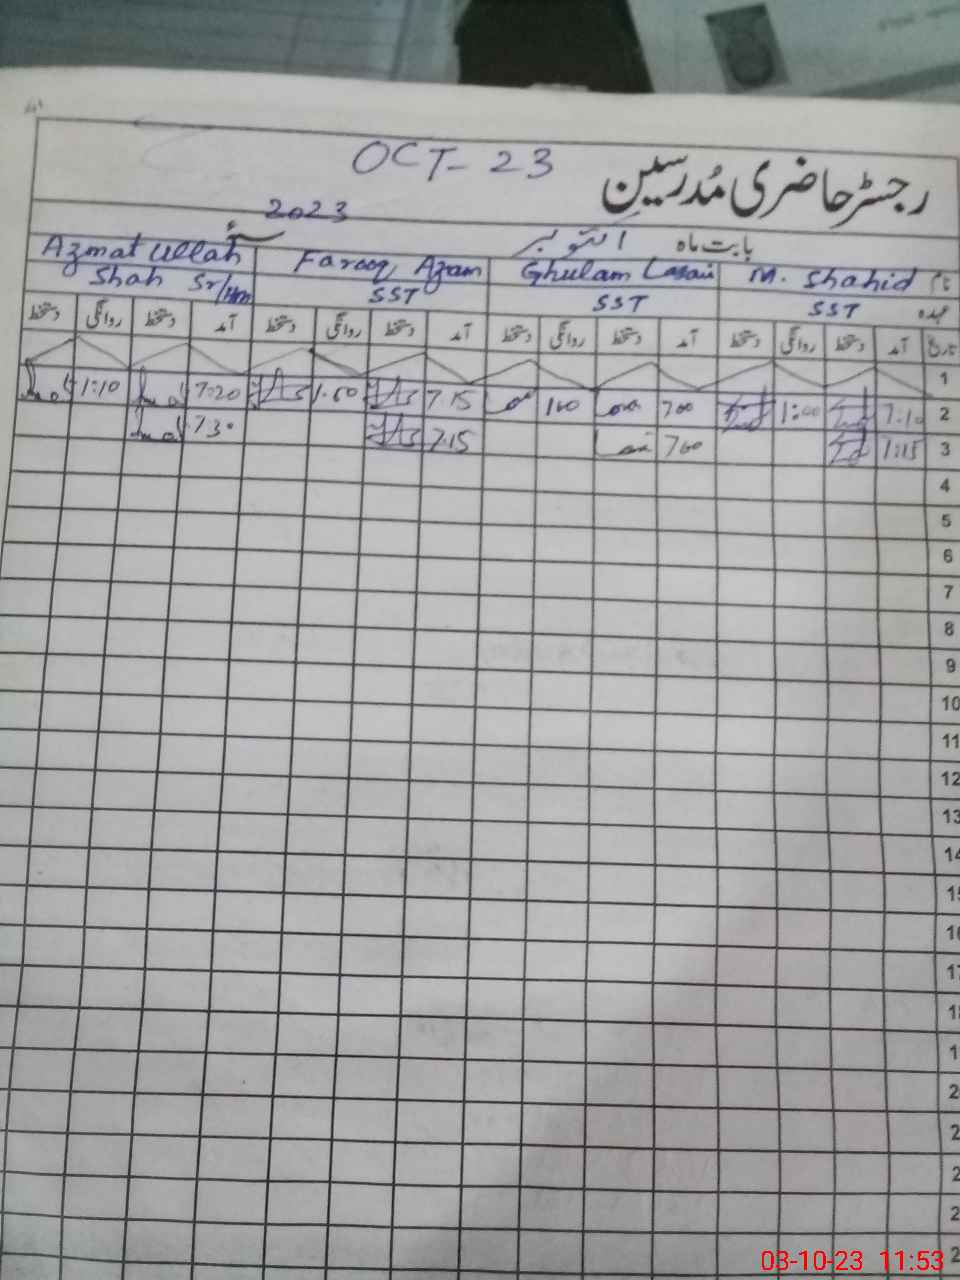 OCT-23
رجسٹر حاضری مُدرسین
2023
بابت ماہ اکتوبر سنہٴ
نام M. Shahid Ghulam Farooq Azam Azmat Ullah
عہدہ SST SST SST Shah Sr/Hm
تاریخ آمد دستخط روانگی دستخط آمد دستخط روانگی دستخط آمد دستخط روانگی دستخط آمد دستخط روانگی دستخط
1
2 7:10 1:00 700 100 7.15 7:20 1:10
3 7:15 700 7.15 730
4
5
6
7
8
9
10
11
12
13
14
03-10-23 11:53